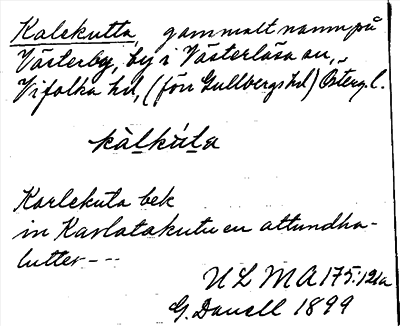 Kalckutta, gammalt namn på
Västerby, by i Västerlösa sn,
Vifolka hd, (förr Gullbergs hd) Österg. l.
kàlkúta
Karlekuta bek
in Karlatakutu en attundha-
lutter---
ULMA 175:121a
G. Danell 1899